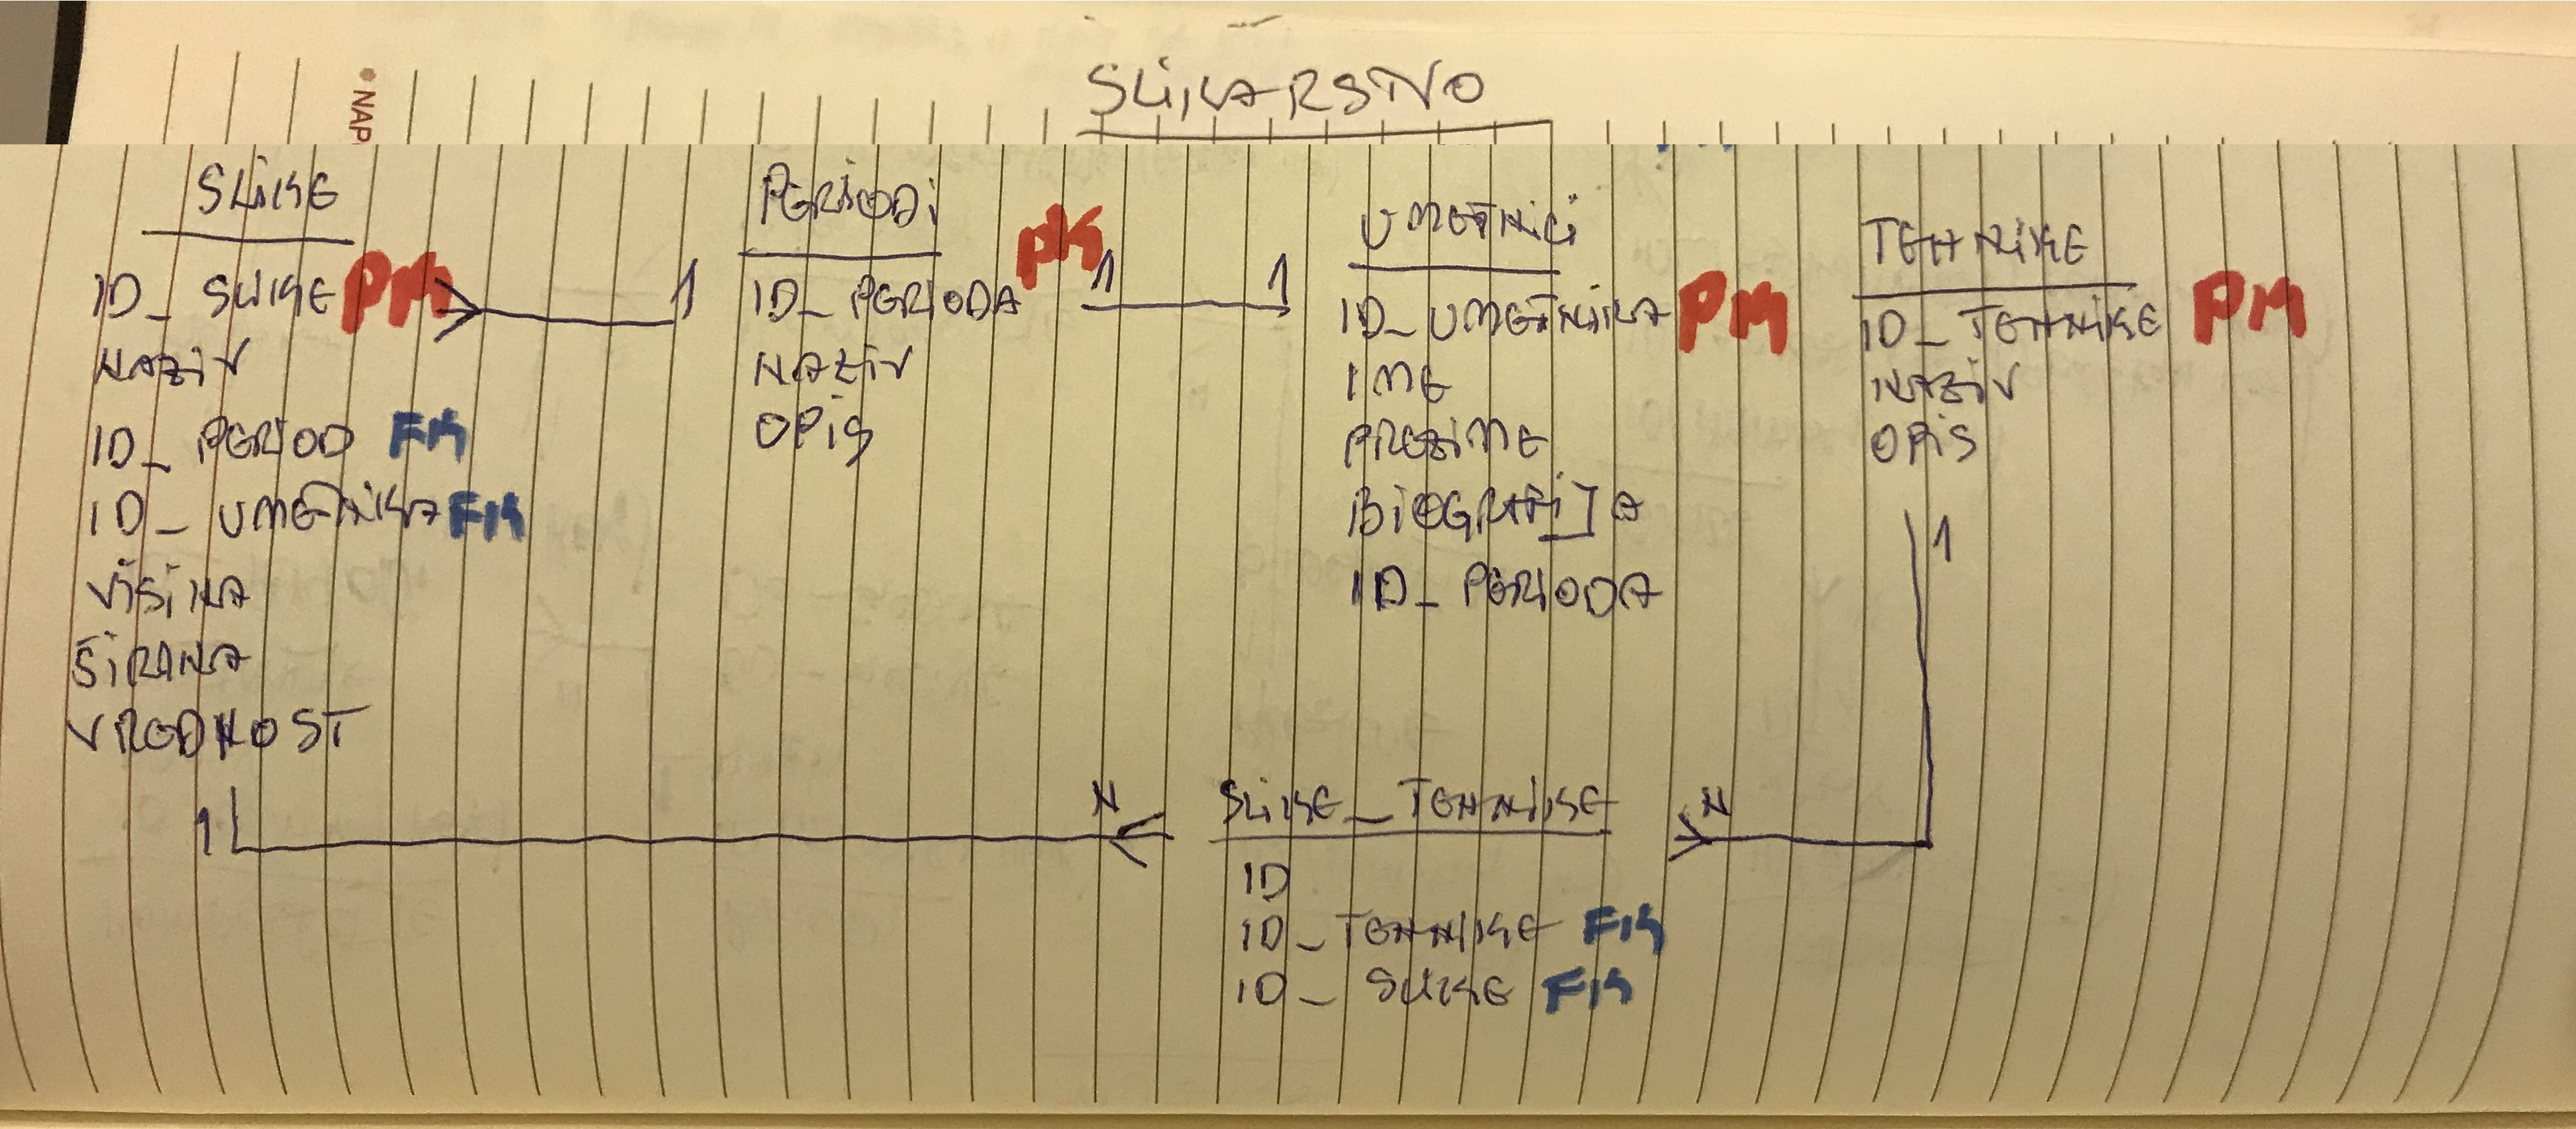 NAP
SLIKARSTVO
SLIKE
ID_SLIKE PK
NAZIV
ID_PERIOD FK
ID_UMETNIKA FK
VISINA
ŠIRINA
VREDNOST
1
1
PERIODI
ID_PERIODA PK
NAZIV
OPIS
1 1
UMETNICI
ID_UMETNIKA PK
IME
PREZIME
BIOGRAFIJA
ID_PERIODA
TEHNIKE
ID_TEHNIKE PK
NAZIV
OPIS
1
N
SLIKE_TEHNIKE
N
ID
ID_TEHNIKE FK
ID_SLIKE FK